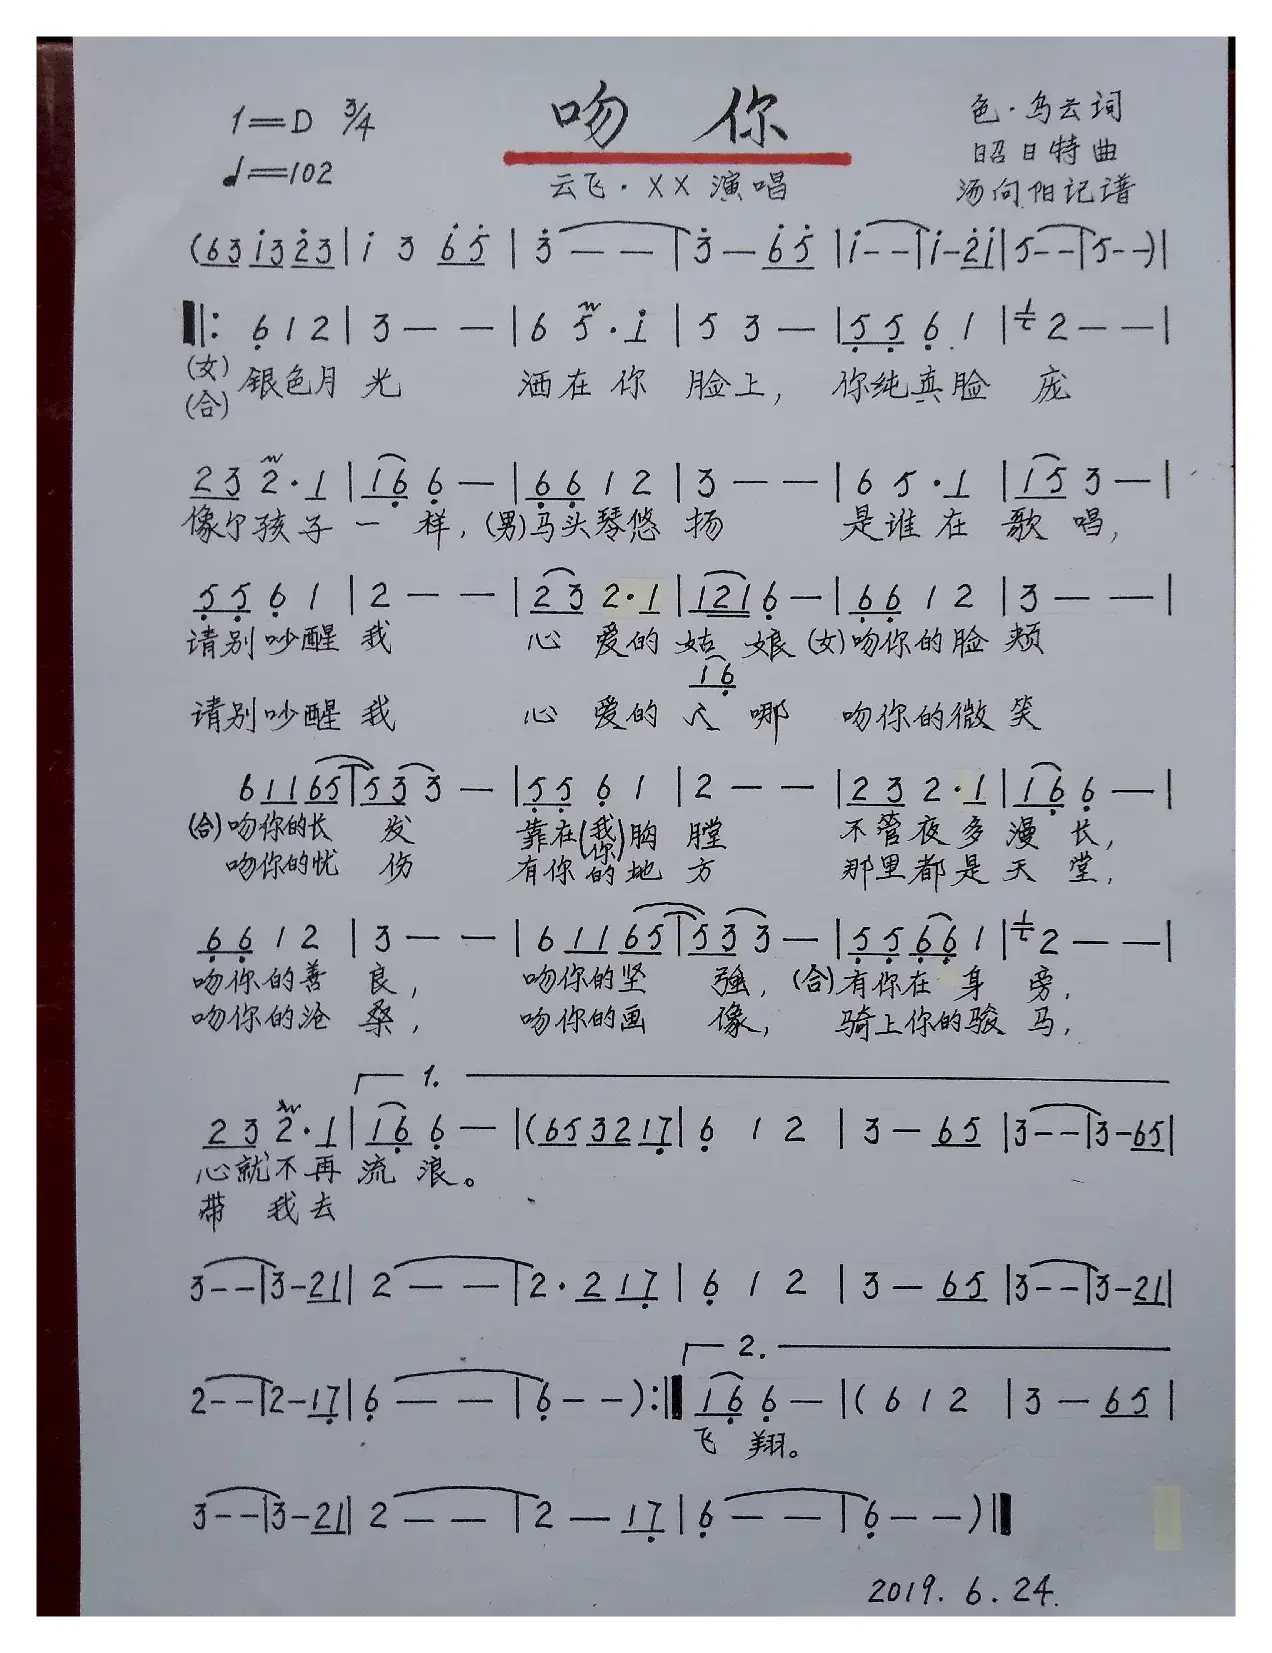 1=D 3/4
吻 你
色·乌云词
♩=102
昭日特曲
云飞·XX演唱
汤向阳记谱
(63 i3 2̇3 | i 3 6̇5̇ | 3̇ - - | 3̇ - 6̇5̇ | i - - | i - 2̇i | 5 - - | 5 - -) |
‖: 6̣ 1 2 | 3 - - | 6 5 · i | 5 3 - | 5̣ 5̣ 6̣ 1 | 2 - - |
(女) 银色月光 洒在你 脸上, 你纯真脸 庞
(合)
2 3 2 · 1 | 1 6̣ 6̣ - | 6̣ 6̣ 1 2 | 3 - - | 6 5 · 1 | 1 5 3 - |
像个孩子一 样, (男)马头琴悠 扬 是谁在 歌 唱,
5̣ 5̣ 6̣ 1 | 2 - - | 2 3 2 · 1 | 1 2 1 6̣ - | 6̣ 6̣ 1 2 | 3 - - |
请别吵醒 我 心 爱的 姑 娘 (女)吻你的脸 颊
1 6̣
请别吵醒 我 心 爱的 人 哪 吻你的微 笑
6 1 1 6 5 | 5 3 3 - | 5̣ 5̣ 6̣ 1 | 2 - - | 2 3 2 · 1 | 1 6̣ 6̣ - |
(合)吻你的长 发 靠在(我你)胸 膛 不管夜多 漫 长,
吻你的忧 伤 有你的地 方 那里都是 天 堂,
6̣ 6̣ 1 2 | 3 - - | 6 1 1 6 5 | 5 3 3 - | 5̣ 5̣ 6̣ 6̣ 1 | 2 - - |
吻你的善 良, 吻你的坚 强, (合)有你在 身 旁,
吻你的沧 桑, 吻你的画 像, 骑上你的骏 马,
1.
2 3 2 · 1 | 1 6̣ 6̣ - | (65 32 17̣ | 6̣ 1 2 | 3 - 65 | 3 - - | 3 - 65 |
心就不再 流 浪。
带 我去
3 - - | 3 - 21 | 2 - - | 2 · 2 17̣ | 6̣ 1 2 | 3 - 65 | 3 - - | 3 - 21 |
2.
2 - - | 2 - 17̣ | 6̣ - - | 6̣ - -) :‖ 1 6̣ 6̣ - | (6 1 2 | 3 - 65 |
飞 翔。
3 - - | 3 - 21 | 2 - - | 2 - 17̣ | 6̣ - - | 6̣ - -) ‖
2019.6.24.